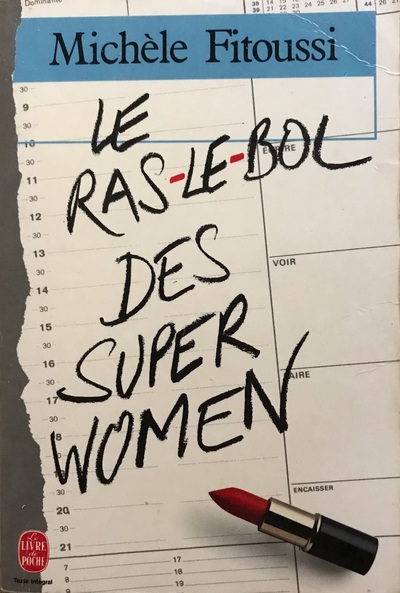 Dominante
Michèle Fitoussi
LE
RAS-LE-BOL
DES
SUPER
WOMEN
9
30
10
30
11
30
12
30
13
30
14
30
15
30
16
30
17
30
30
20
30
21
VOIR
ENCAISSER
Le
LIVRE
de
POCHE
Texte intégral
7
8
9
17
18
19